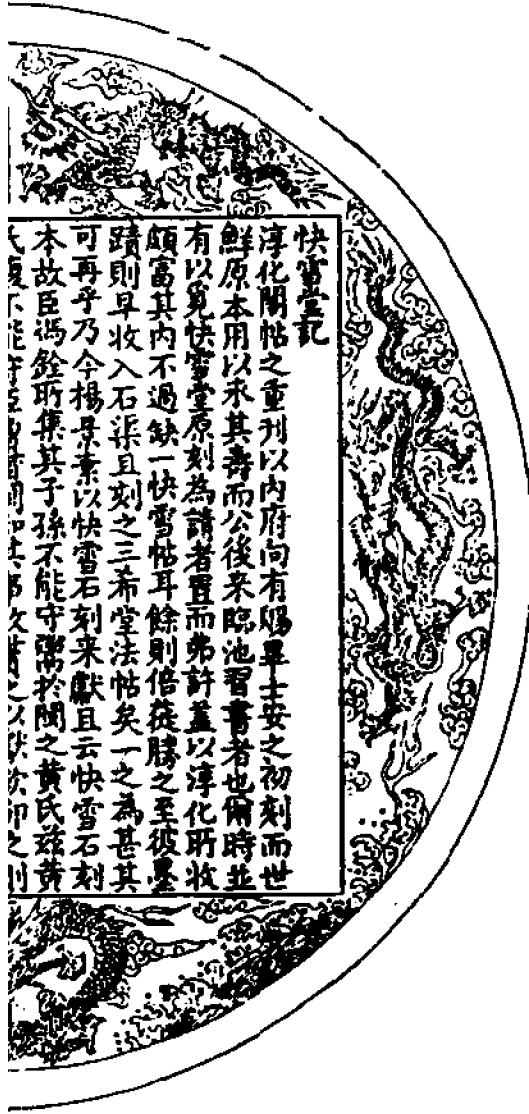 快雪堂記
淳化閣帖之重刊以內府向有賜畢士安之初刻而世
鮮原本用以永其壽而公後来臨池習書者也俻時並
有以覓快雪堂原刻為請者置而弗許蓋以淳化所收
頗富其內不過缺一快雪帖耳餘則倍蓰勝之至彼墨
蹟則早收入石渠且刻之三希堂法帖矣一之為甚其
可再乎乃今楊景素以快雪石刻来獻且云快雪石刻
本故臣馮銓所集其子孫不能守鬻於閩之黃氏茲黃
氏復不能守